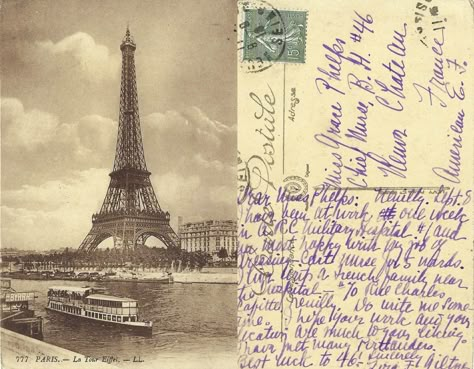 777 PARIS. — La Tour Eiffel. — LL.
Carte Postale
Adresse
Miss Grace Phelps
Chief Nurse, B.H. #46
Chateau
France
American E.F.
Dear Miss Phelps: Neuilly. Sept. 8
I have been at work one week
in A.R.C. Military Hospital #1 and
am most happy with my job of
Dressing Cart nurse for wards.
a French family near
the hospital - 70 Rue Charles
Lafitte, Neuilly. Do write me some
time. I hope your work and your
location are much to your liking.
have met many Portlanders.
Best luck to 46 - Sincerely